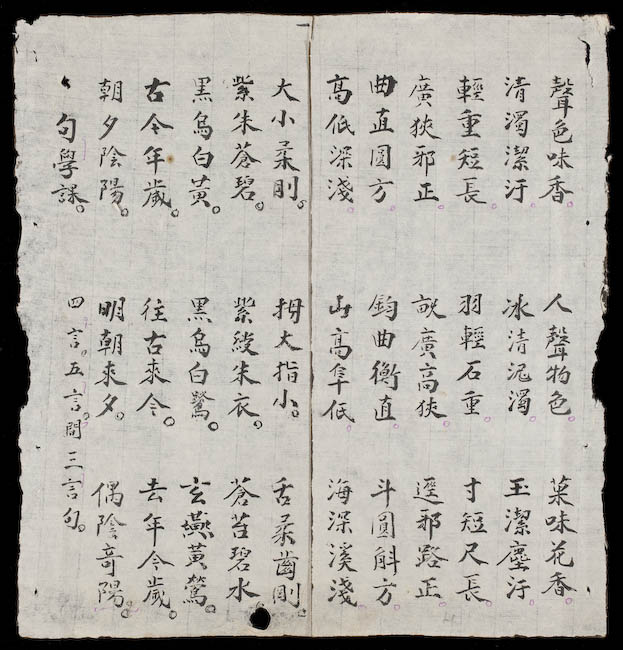 聲色味香。 人聲物色 菜味花香。
清濁潔汙。 冰清泥濁 玉潔塵汙。
輕重短長。 羽輕石重。 寸短尺長。
廣狹邪正。 廣高狹。 逕邪路正。
曲直圓方。 鈞曲衡直。 斗圓斛方。
高低深淺。 山高阜低。 海深溪淺。
大小柔剛。 拇大指小。 舌柔齒剛。
紫朱蒼碧。 紫綬朱衣。 蒼苔碧水
黑烏白黃。 黑烏白鷺。 玄燕黃鶯。
古今年歲。 往古來今。 去年今歲。
朝夕陰陽。 明朝來夕。 偶陰奇陽。
句學課。 四言。五言。間三言句。